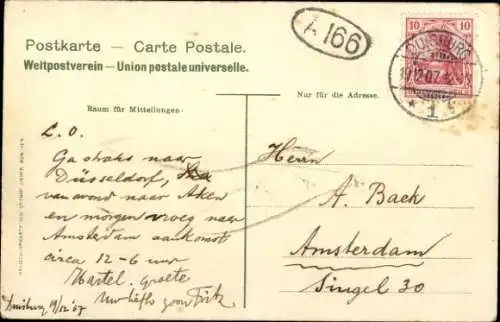 Postkarte — Carte Postale.
Weltpostverein — Union postale universelle.
A 166
10 10
DUISBURG
19.12.07
* 1
Raum für Mitteilungen.
Nur für die Adresse.
L. O.
Ga straks naar
Düsseldorf,
vanavond naar Aken
en morgen vroeg naar
Amsterdam aankomst
circa 12-6 uur
Hartel. groete
Fritz
Duisburg 19/12 '07
Herrn
A. Baek
Amsterdam
Singel 30